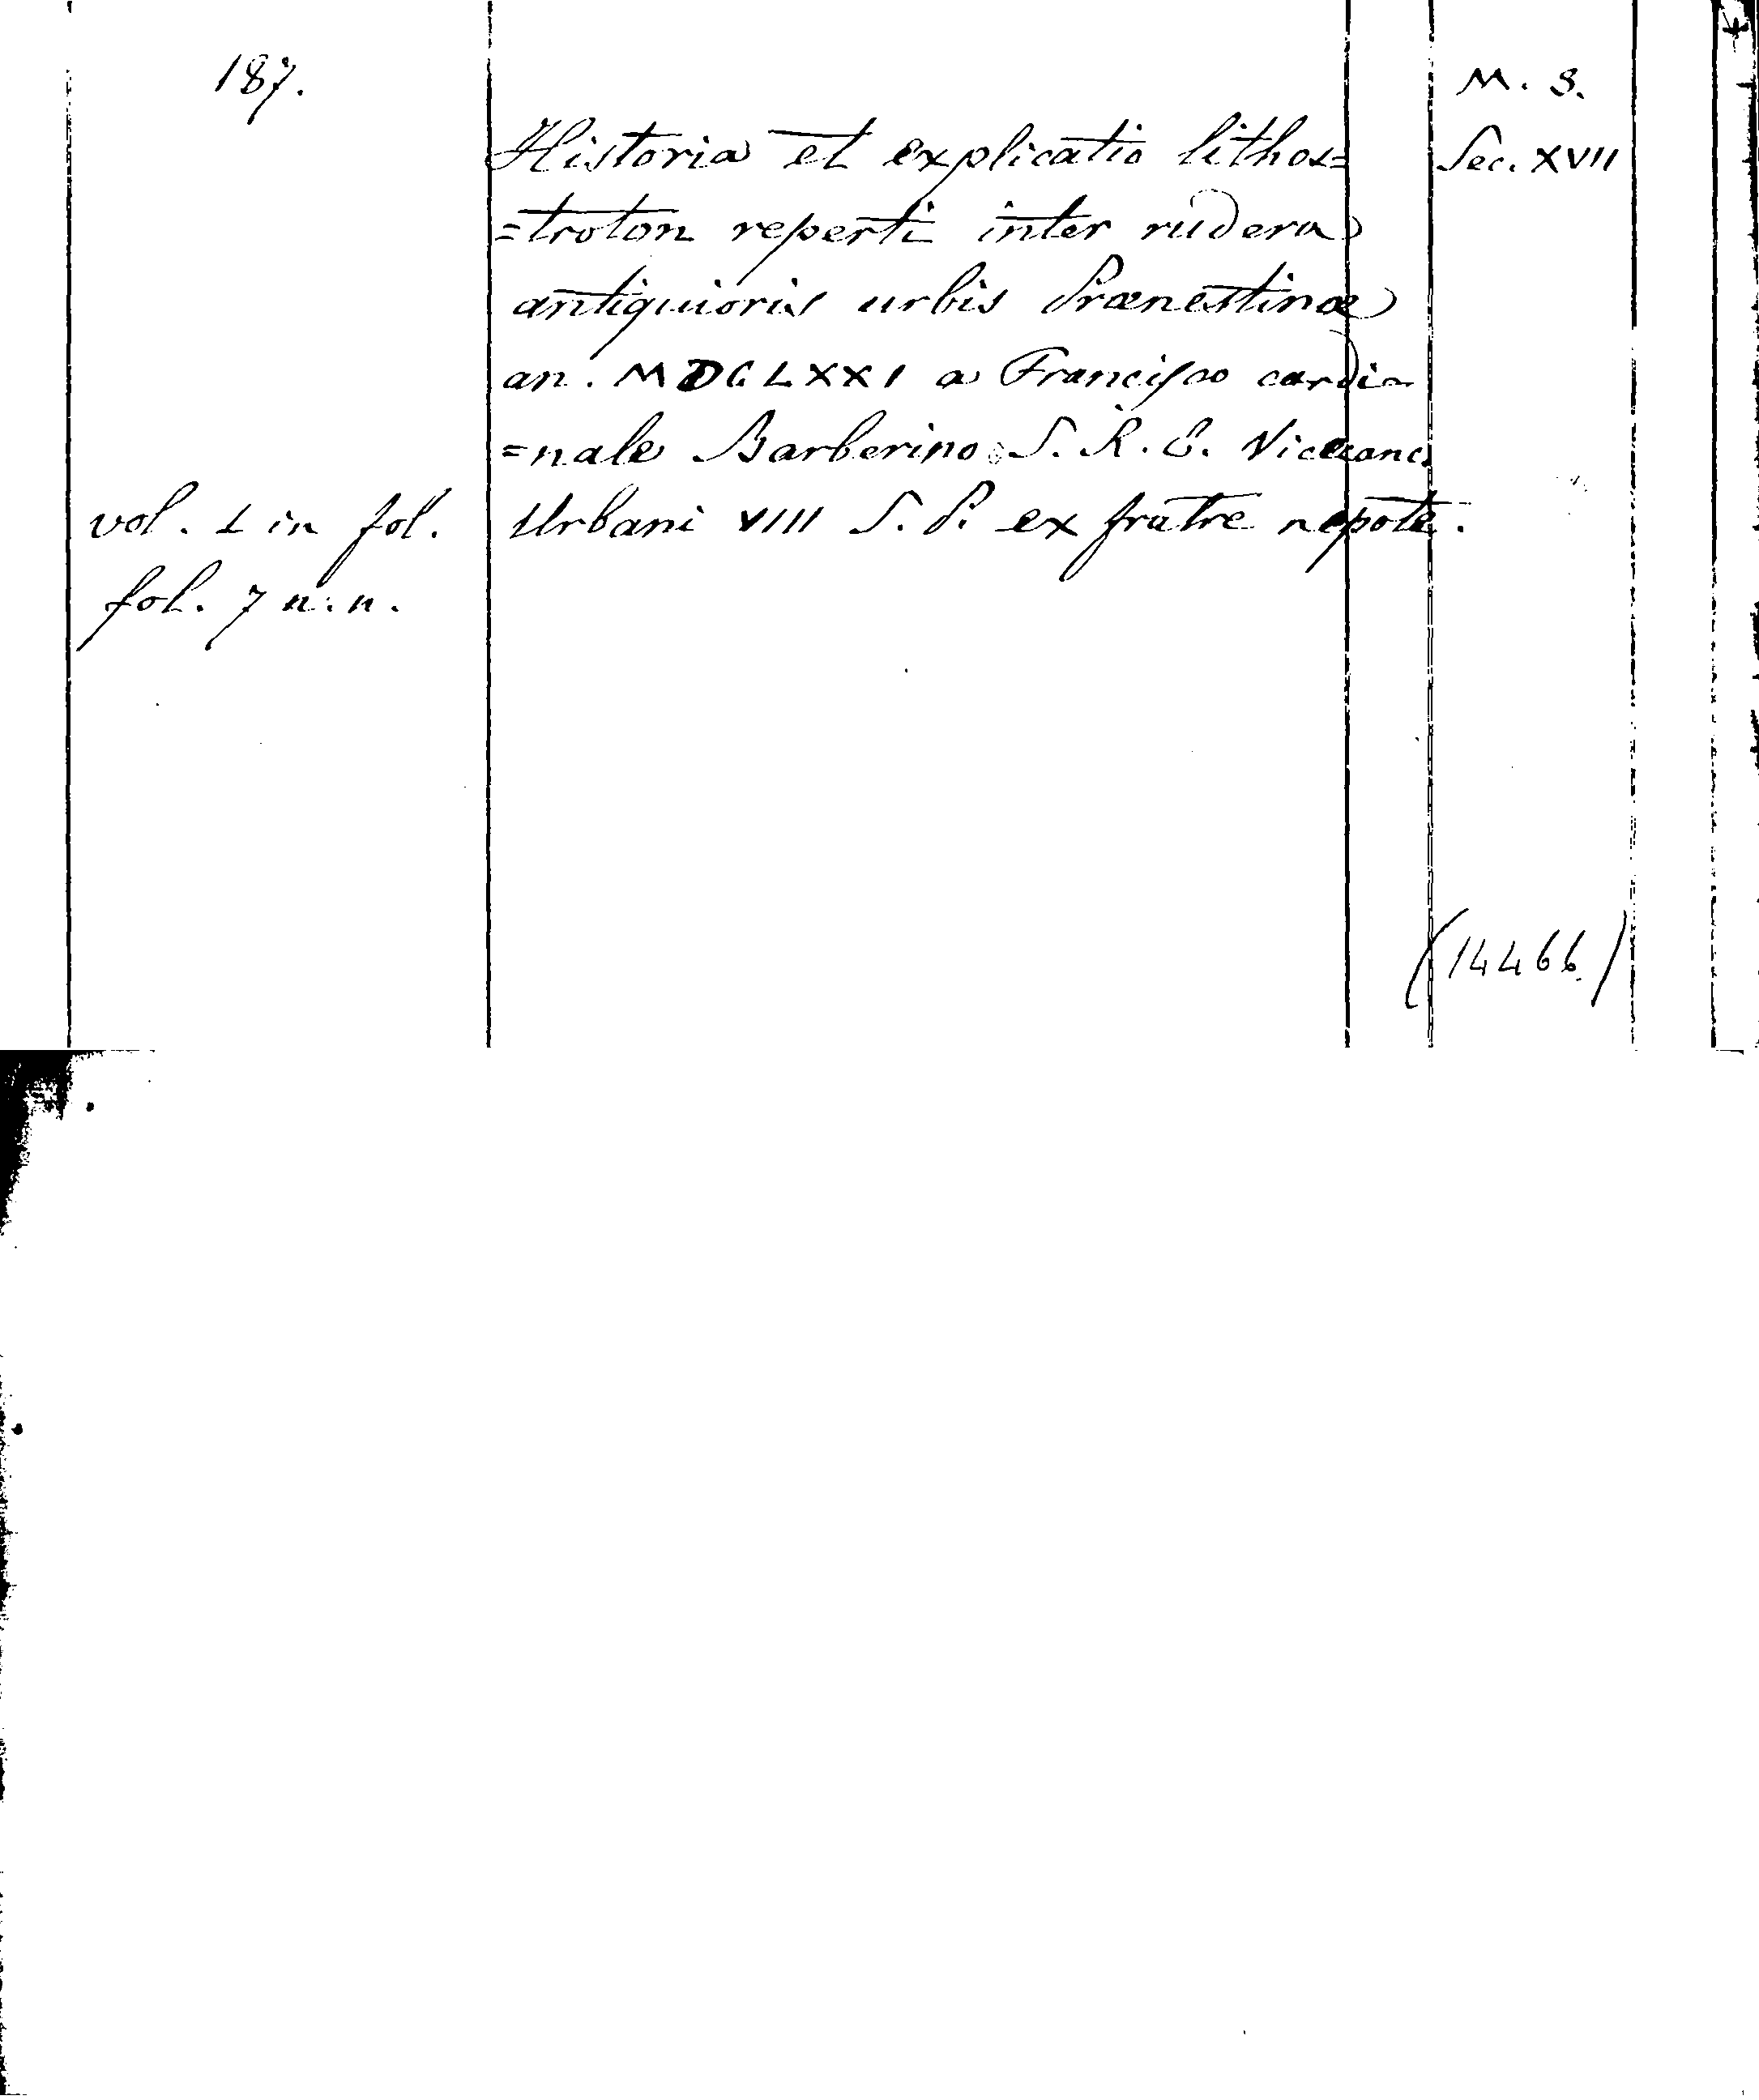 187.
M. S.
Historia et explicatio lithos=
Sec. XVII
=troton reperti inter rudera
antiquioris urbis Prænestinæ
an. MDCLXXI a Francisco cardi-
=nale Barberino S. R. E. Vicecanc.
vol. 1 in fol.
Urbani VIII S. P. ex fratre nepote.
fol. 7 n. n.
(14466)